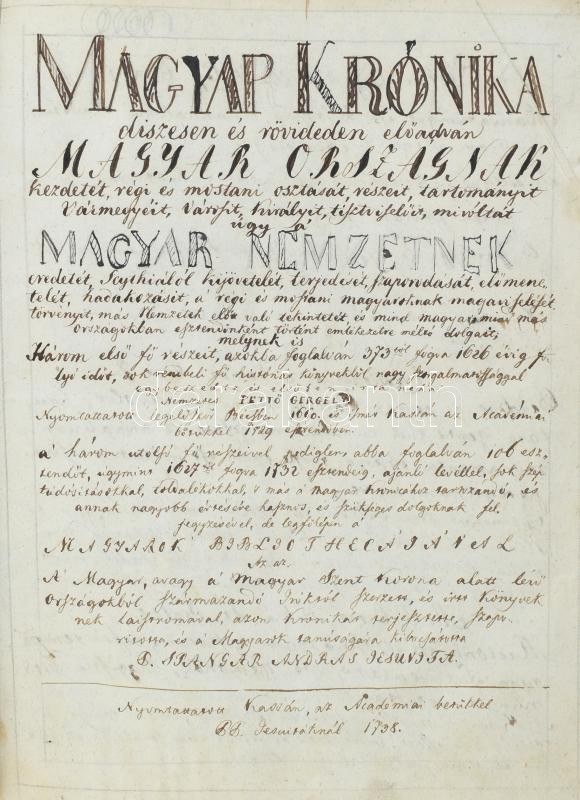 MAGYAR KRÓNIKA
díszesen és rövideden előadván
MAGYAR ORSZÁGNAK
kezdetét, régi és mostani osztását, részeit, tartományit
Vármegyéit, Várossit, királyit, tisztviselőit, mivoltát
úgy a'
MAGYAR NEMZETNEK
eredetét, Scythiából kijövetelét, terjedését, szaporodását, előmene-
telét, hadakozásit, a' régi és mostani magyaroknak magaviselését
törvényit, más Nemzetek első való tekintetét, és mind magyar, mind más
országokban esztendőnként történt emlékezetre méltó dolgait,
melynek is
Három első fő részeit, azokba foglalván 373tól fogva 1626 évig f
lyó időt, sok rendbéli fő históriás könyvekből nagy szorgalmatossággal
egybeszedte, és elsőben írta néhai
Nemzetes PETTŐ GERGELY
Nyomtattatott legelőször Bécsben 1660. és ismét Kassán az Académiai
bötűkkel 1729 esztendőben.
a' három utolsó fő részeivel pediglen, abba foglalván 106 esz-
tendőt, úgymint 1627től fogva 1732 esztendeig, ajánló levéllel, sok szép
tudósításokkal, toldalékokkal, s más a' magyar krónicához tartozandó, és
annak nagyobb értésére hasznos, és szükséges dolgoknak fel
jegyzésével, de legfőképen a'
MAGYAROK BIBLIOTHECÁJÁVAL
Az az.
A' Magyar, avagy a' Magyar Szent Korona alatt lévő
Országokból származandó Íróktól szerzett, és írtt Könyvek
nek laistromával, azon krónikát terjesztette, szapo-
rította, és a' Magyarok tanúságára kibocsátotta
P. SPANGÁR ANDRÁS JESUVITA.
Nyomtattatott Kassán, az Académiai betűkkel
PP. Jesuitáknál 1738.